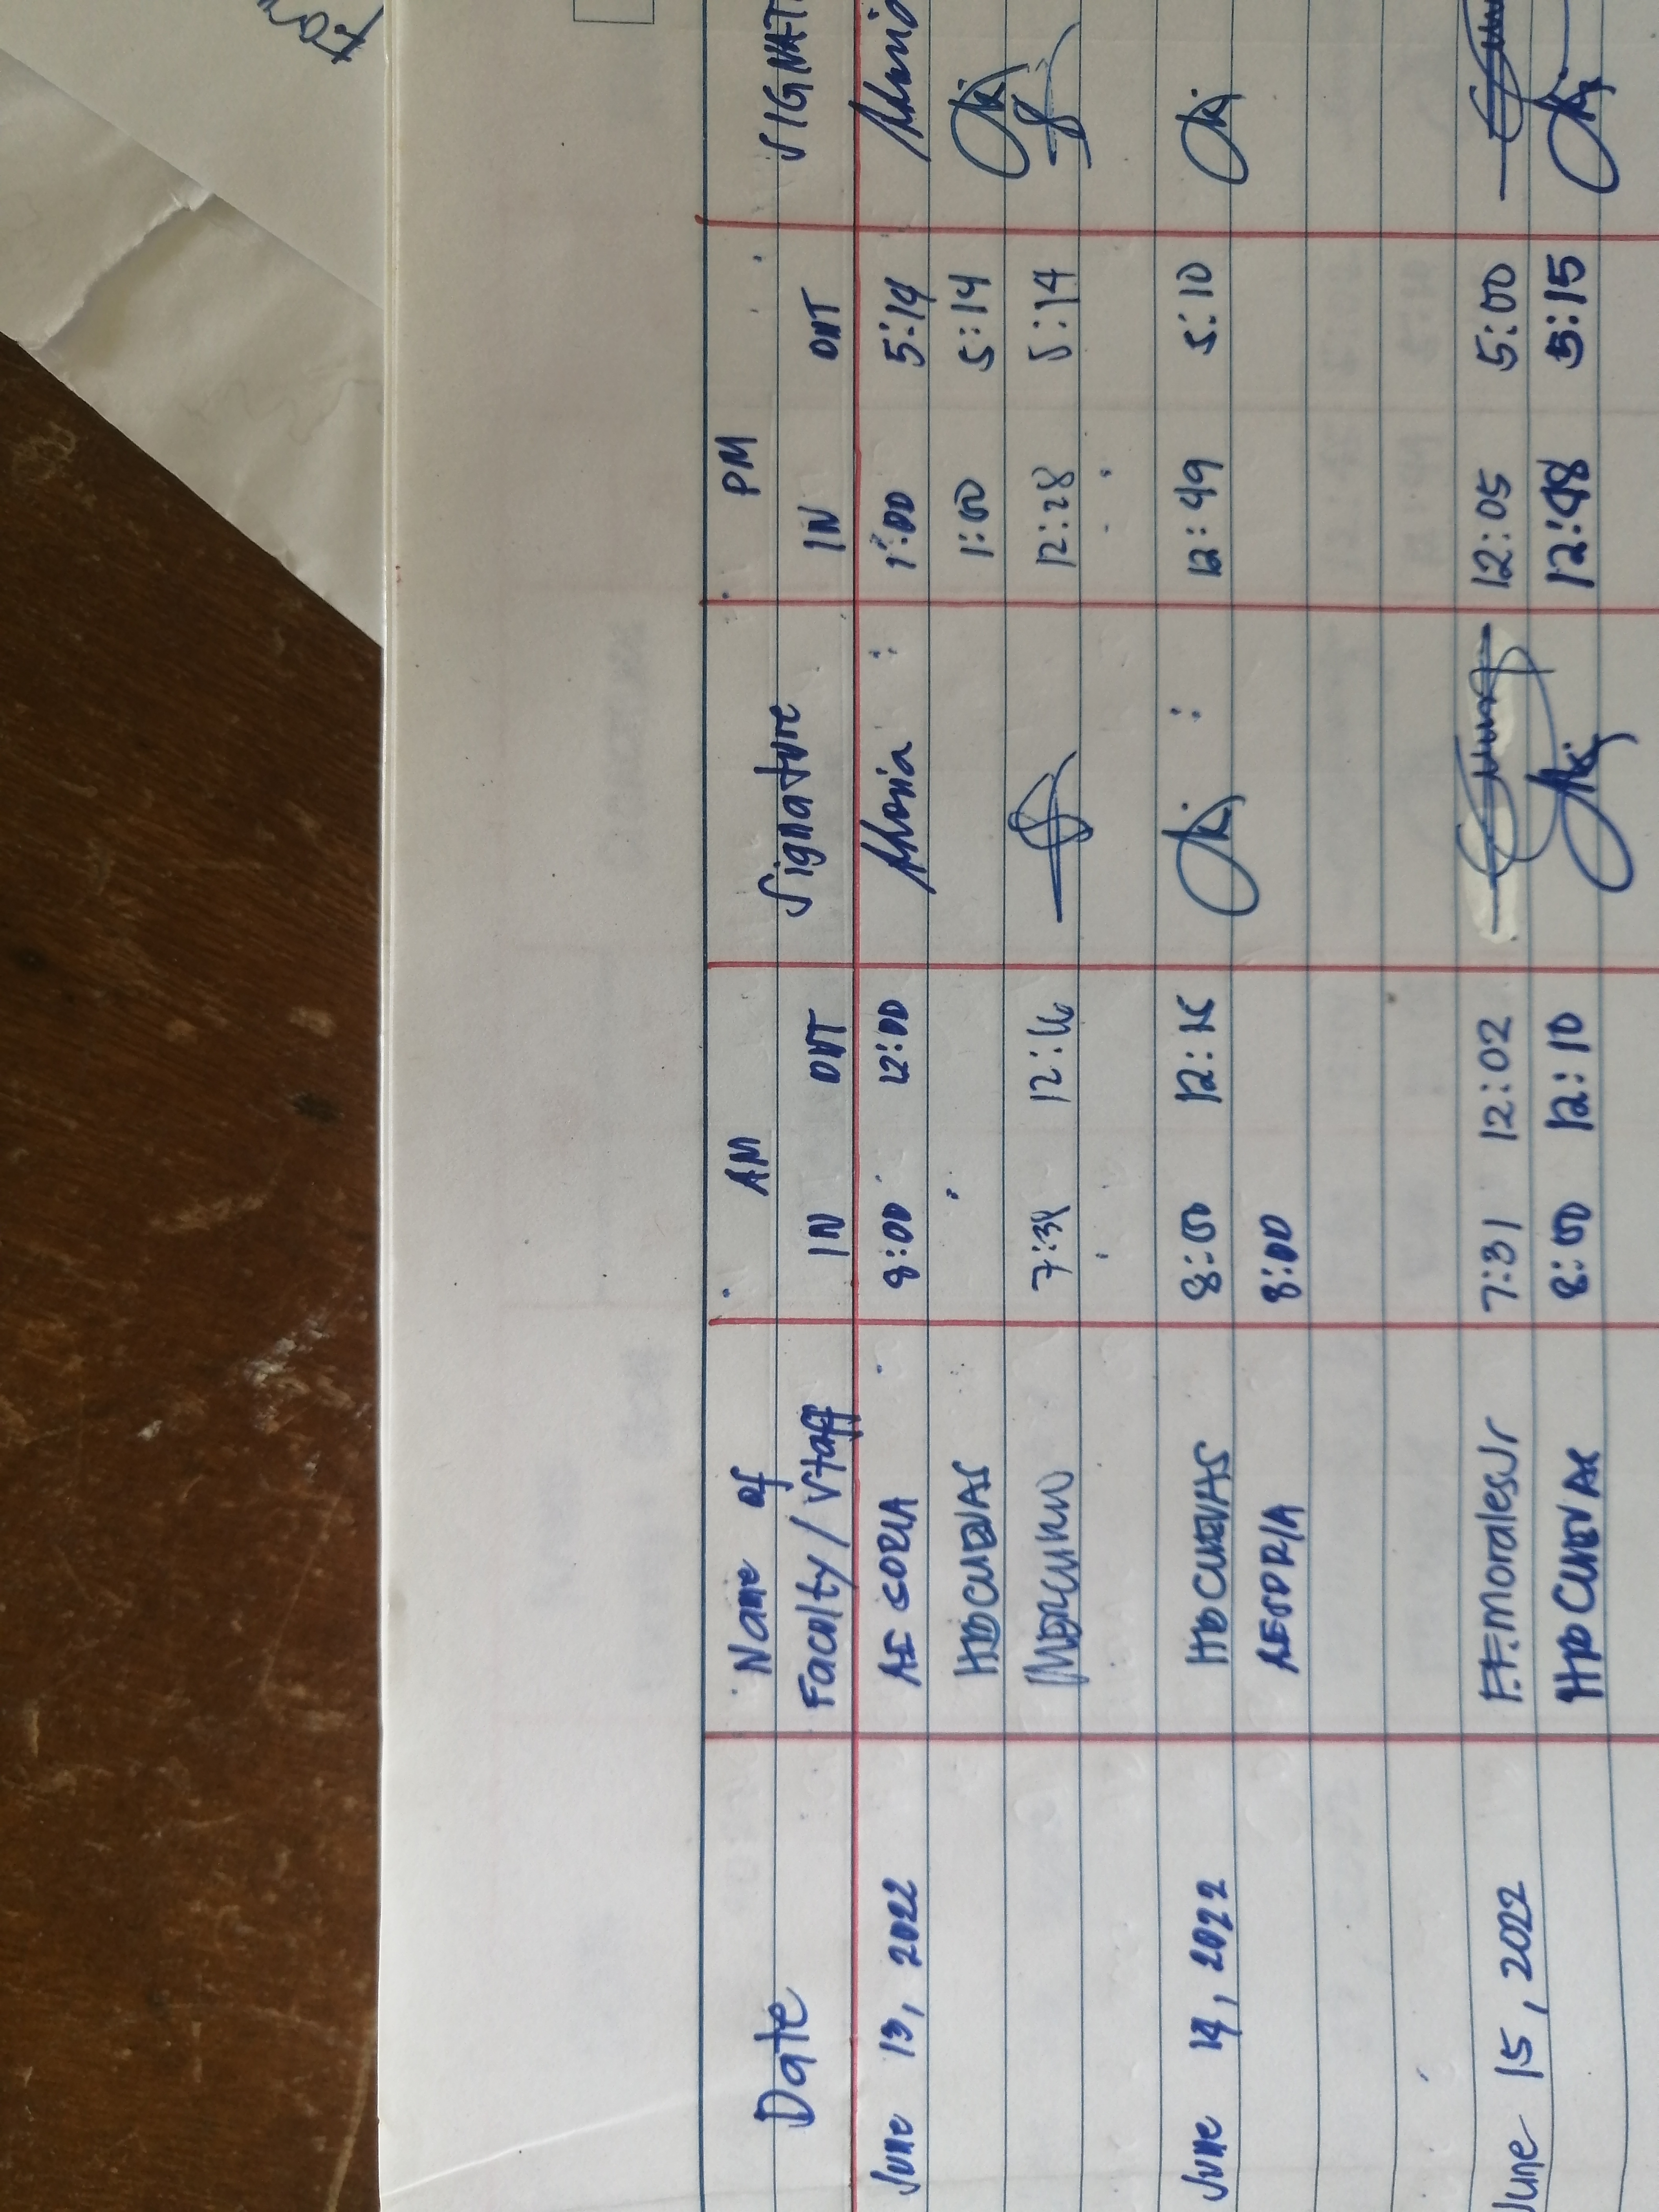 AM PM
Date Name of Faculty / Staff IN OUT Signature IN OUT SIGNAT
June 13, 2022 AESORIA 8:00 12:00 1:00 5:14
HDCUENAS 1:00 5:14
12:16 12:28 5:14
June 14, 2022 HDCUENAS 8:00 12:49 5:10
AESORIA 8:00
June 15, 2022 F.F. Morales Jr 7:31 12:02 12:05 5:00
HDCUENAS 8:00 12:10 12:48 5:15